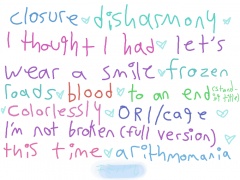 closure disharmony
I thought I had let's
wear a smile frozen
roads blood to an end
colorlessly ORI/cage
I'm not broken (full version)
this time arithmomania